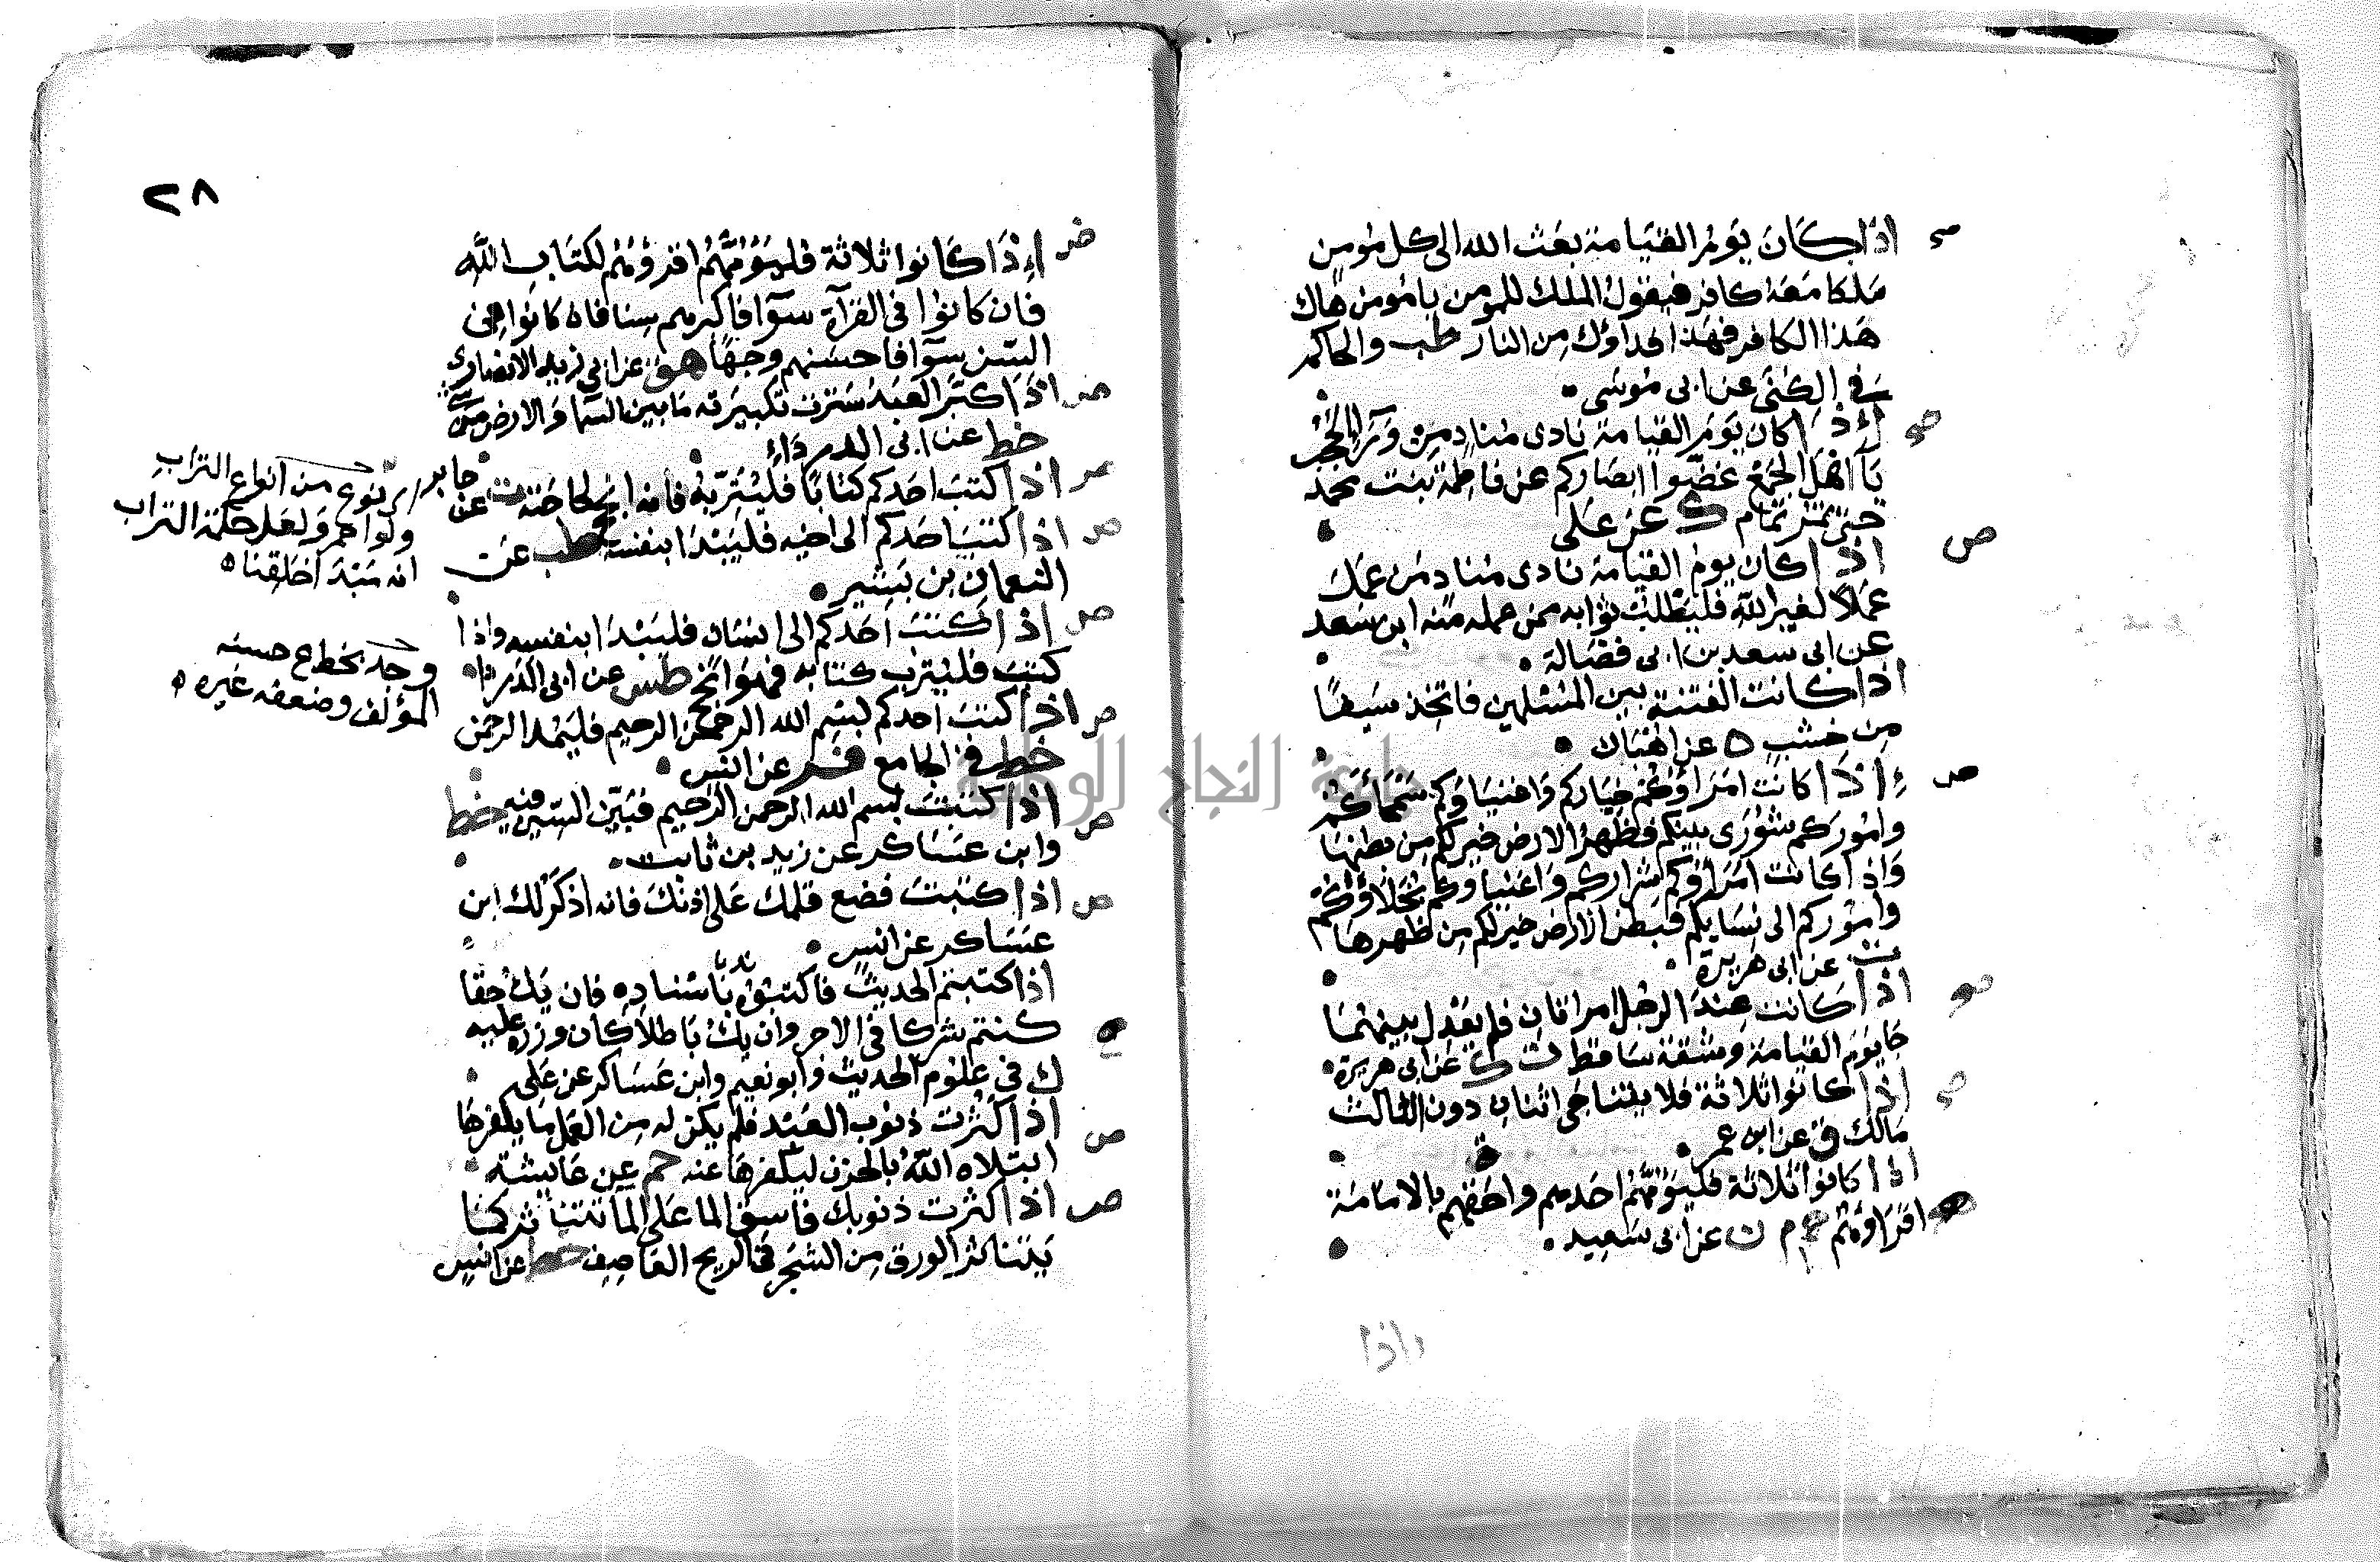 اذا كان يوم القيامة بعث الله الى كل مومن
ملكا معه كافر فيقول الملك للمومن يا مومن هاك
هذا الكافر فهذا فداؤك من النار طب والحاكم
في الكنى عن ابى موسى
صح اذا كان يوم القيامة نادى مناد من ورآء الحجب
يا اهل الجمع غضوا ابصاركم عن فاطمة بنت محمد
حتى تمر تمام ك عن على
ص اذا كان يوم القيامة نادى مناد من عمل
عملا لغير الله فليطلب ثوابه ممن عمله له ابن سعد
عن ابى سعد بن ابى فضالة
اذا كانت الفتنة بين المسلمين فاتخذ سيفا
من خشب ه عن اهبان
ص اذا كانت امراؤكم خياركم واغنياؤكم سمحاءكم
واموركم شورى بينكم فظهر الارض خير لكم من بطنها
واذا كانت امراؤكم شراركم واغنياوكم بخلاؤكم
واموركم الى نسايكم فبطن الارض خير لكم من ظهرها
ت عن ابى هريرة
اذا كانت عند الرجل امراتان فلم يعدل بينهما
جا يوم القيامة وشقه ساقط ت ك عن ابى هريرة
اذا كانوا ثلاثة فلا يتناجى اثنان دون الثالث
مالك ق عن ابن عمر
اذا كانوا ثلاثة فليؤمهم احدهم واحقهم بالامامة
اقراؤهم حم م ن عن ابى سعيد
واذا
٢٨
ض اذا كانوا ثلاثة فليؤمهم اقرؤهم لكتاب الله
فان كانوا فى القرآة سوآ فاكبرهم سنا فان كانوا فى
السن سوآ فاحسنهم وجها هق عن ابي زيد الانصارى
ض اذا كبر العبد سترت تكبيرته ما بين السما والارض من شئ
خط عن ابى الدرداء
اذا كتب احدكم كتابا فليتربه فانه انجح لحاجته ت عن جابر
ص اذا كتب احدكم الى اخيه فليبدا بنفسه طب عن
النعمان بن بشير
ص اذا كتب احدكم الى انسان فليبدا بنفسه واذا
كتب فليترب كتابه فهو انجح طس عن ابى الدرداء
ص اذا كتب احدكم بسم الله الرحمن الرحيم فليمد الرحمن
خط في الجامع فر عن انس
ص اذا كتبت بسم الله الرحمن الرحيم فبين السين فيه خط
وابن عساكر عن زيد بن ثابت
ص اذا كتبت فضع قلمك على اذنك فانه اذكر لك ابن
عساكر عن انس
اذا كتبتم الحديث فاكتبوه باسناده فان يك حقا
كنتم شركا في الاجر وان يك باطلا كان وزره عليه
ك في علوم الحديث وابو نعيم وابن عساكر عن على
ص اذا كثرت ذنوب العبد فلم يكن له من العمل ما يكفرها
ابتلاه الله بالحزن ليكفرها عنه حم عن عايشة
ص اذا كثرت ذنوبك فاسق الما على الما تتناثر كما
يتناثر الورق من الشجر في الريح العاصف خط عن انس
اى بنوع من انواع التراب
ولو احمر ولعل حكمة التراب
انه مبدا خلقنا ه
وجد بخط ع حسنه
المؤلف وضعفه غيره ه
جامعة النجاح الوطنية